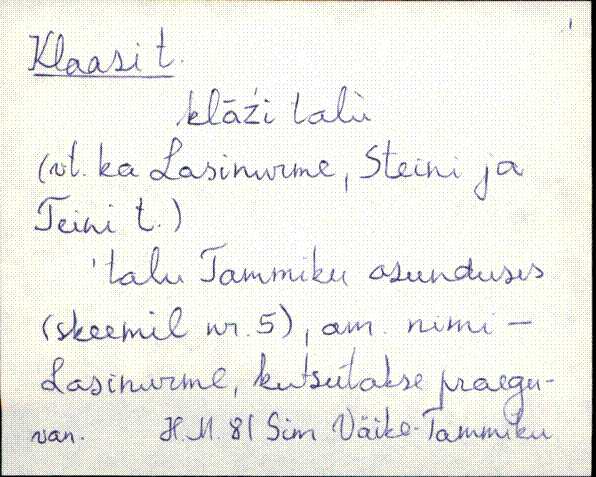 Klaasi t.
klāźi talu
(vt. ka Lasinurme, Steini ja
Teini t.)
talu Tammiku asunduses
(skeemil nr. 5), am. nimi –
Lasinurme, kutsutakse praegu-
van. H.M. 81 Sim Väike-Tammiku